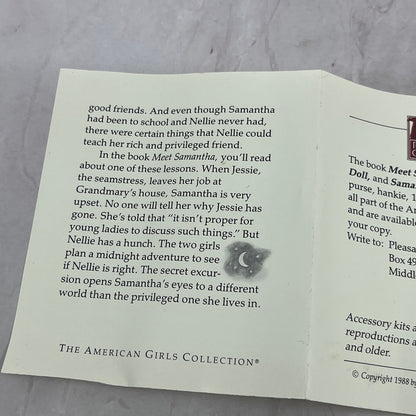 good friends. And even though Samantha
had been to school and Nellie never had,
there were certain things that Nellie could
teach her rich and privileged friend.
In the book Meet Samantha, you'll read
about one of these lessons. When Jessie,
the seamstress, leaves her job at
Grandmary's house, Samantha is very
upset. No one will tell her why Jessie has
gone. She's told that "it isn't proper for
young ladies to discuss such things." But
Nellie has a hunch. The two girls
plan a midnight adventure to see
if Nellie is right. The secret excur-
sion opens Samantha's eyes to a different
world than the privileged one she lives in.
THE AMERICAN GIRLS COLLECTION®
The book Meet S
Doll, and Sama
purse, hankie, 1
all part of the Am
and are available
your copy.
Write to: Pleasa
Box 49
Middl
Accessory kits a
reproductions a
and older.
© Copyright 1988 by